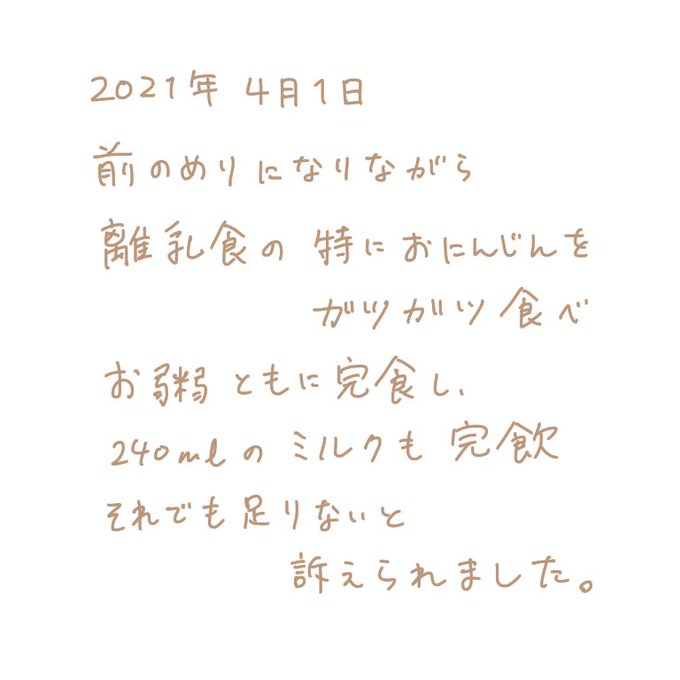 2021年 4月1日
前のめりになりながら
離乳食の 特におにんじんを
ガツガツ食べ
お粥ともに完食し、
240mlのミルクも完飲
それでも足りないと
訴えられました。